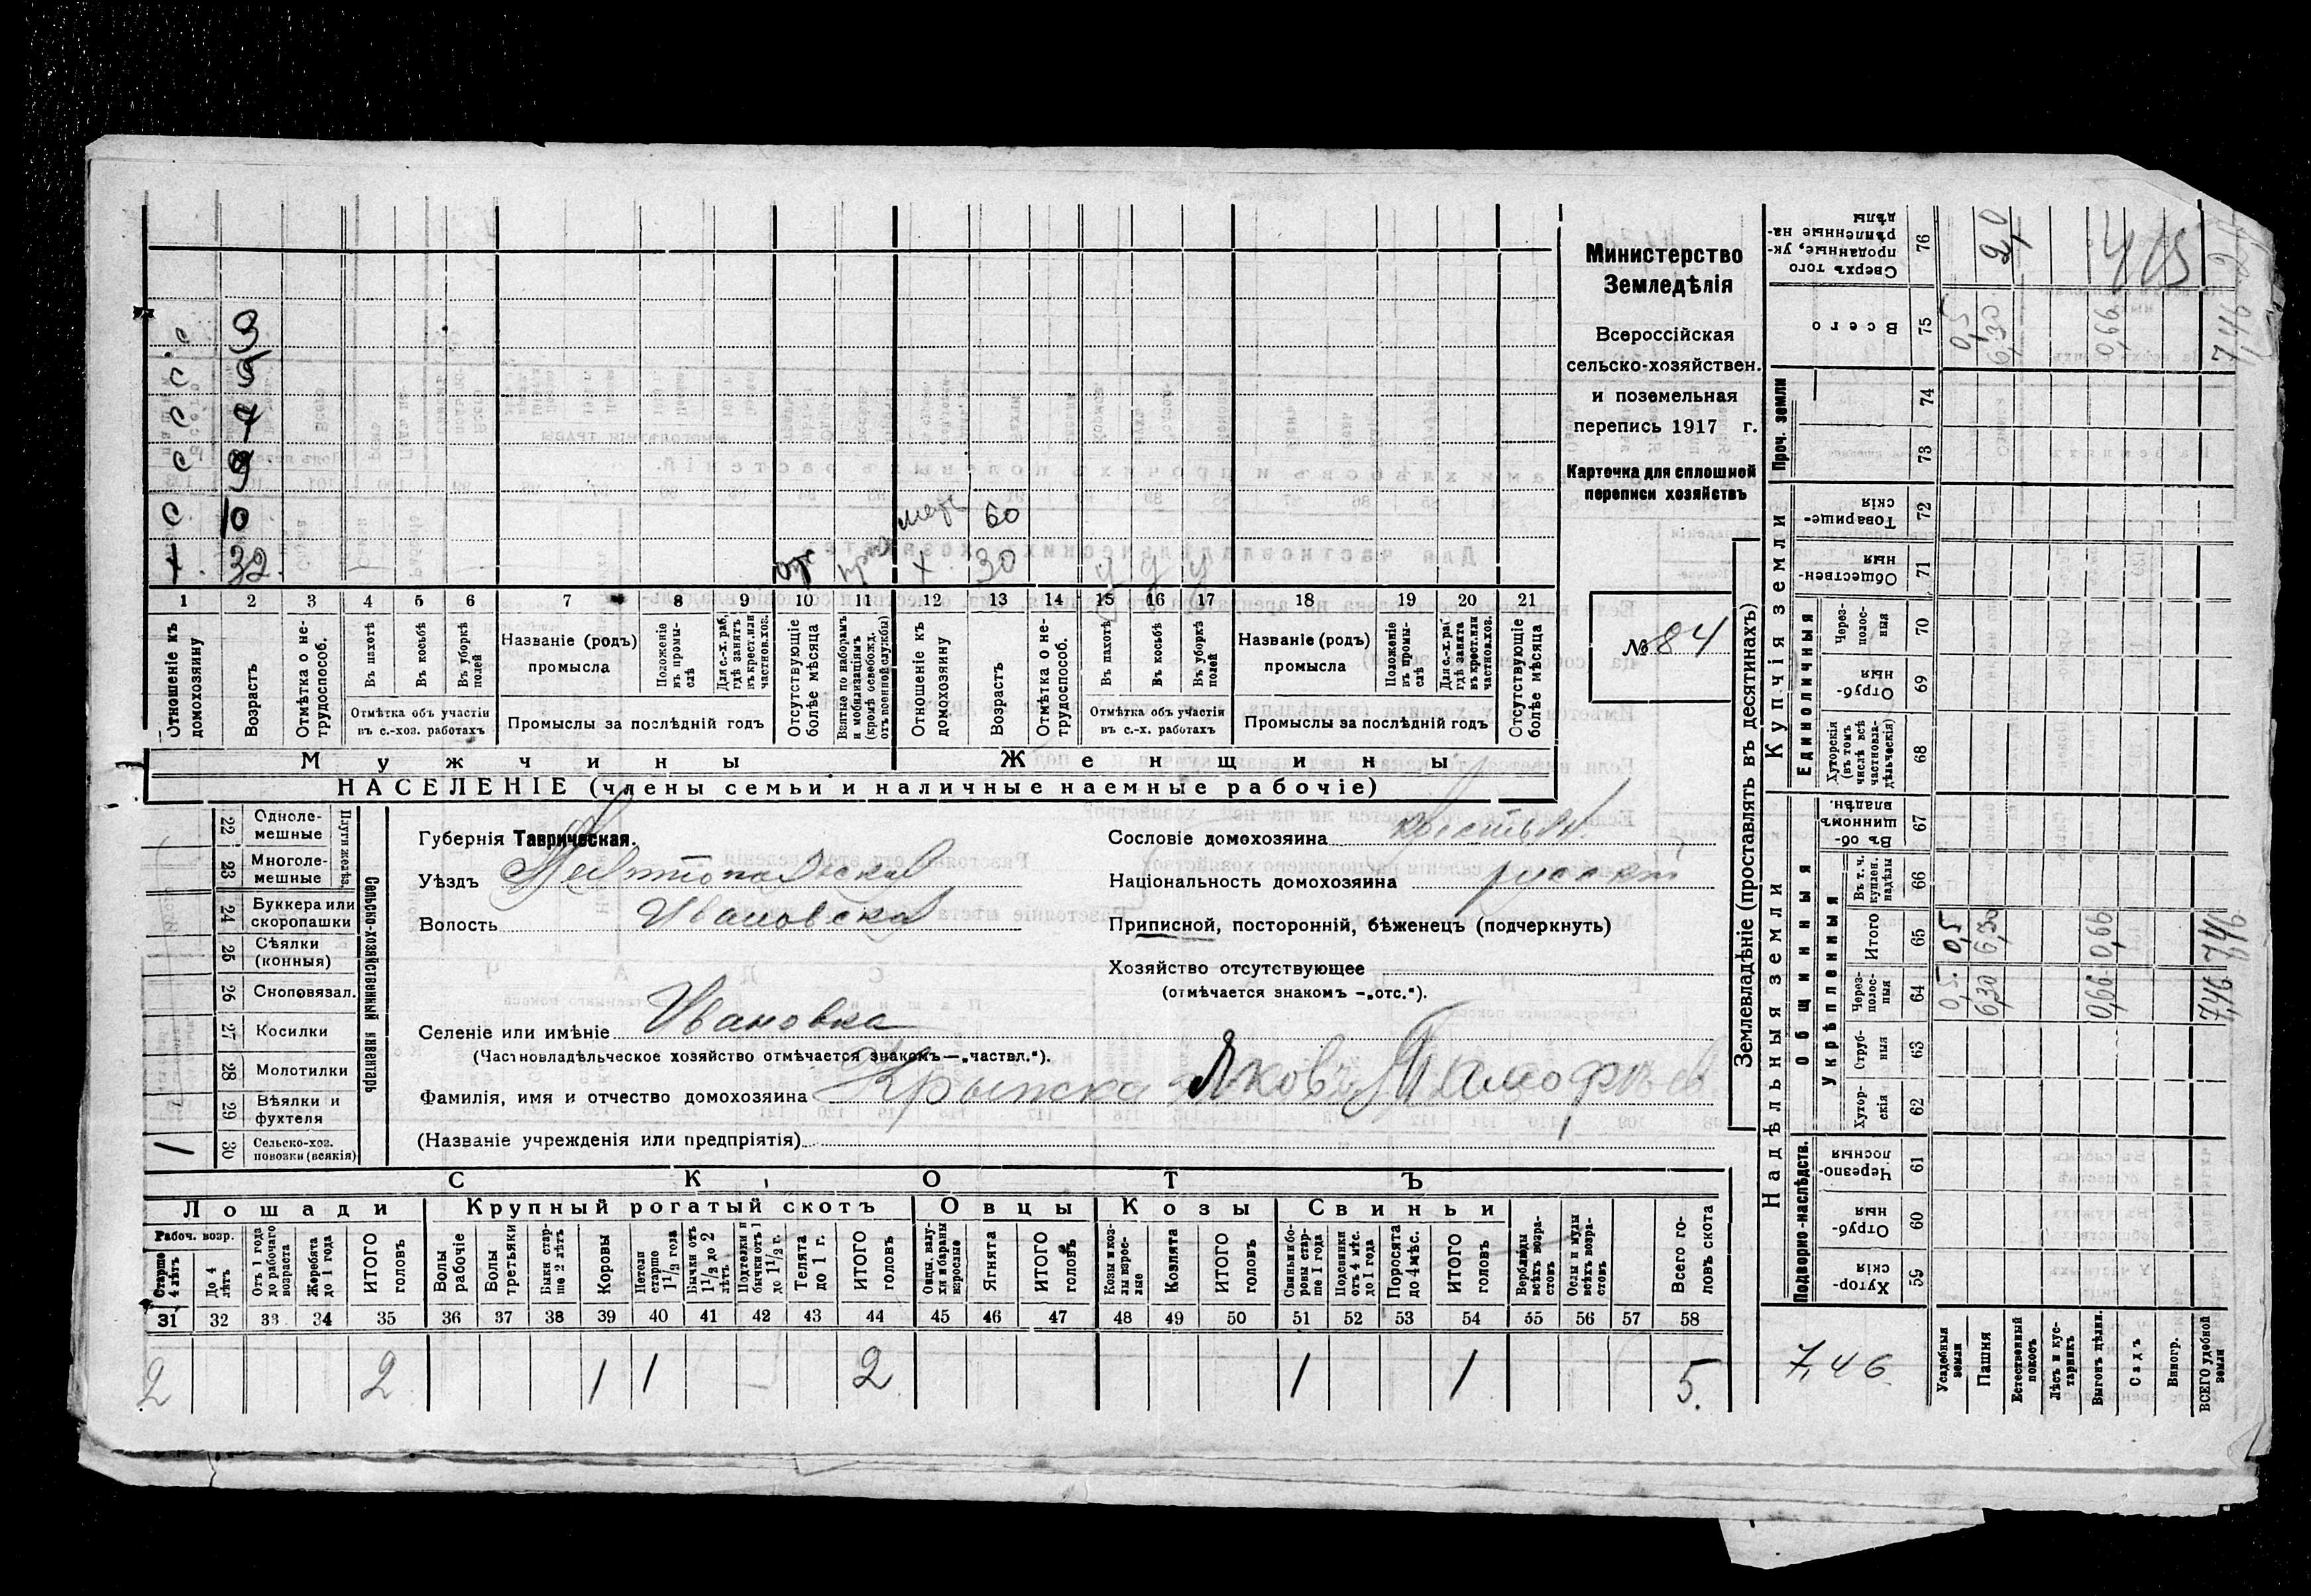 с 3
с 5
с 7
с 9
с 10 мать 60
х. 32. х 30 у у у
1 2 3 4 5 6 7 8 9 10 11 12 13 14 15 16 17 18 19 20 21
Отношеніе къ домохозяину
Возрастъ
Отмѣтка о не-трудоспособ.
Въ пахотѣ
Въ косьбѣ
Въ уборкѣ полей
Отмѣтка объ участіи
въ с.-хоз. работахъ
Названіе (родъ)
промысла
Положеніе въ промы-слѣ
Для с.-х. раб. гдѣ занятъ въ крест. или частнов. хоз.
Промыслы за послѣдній годъ
Отсутствующіе болѣе мѣсяца
Взятые по наборамъ и мобилизаціямъ (кромѣ освобожд. отъ военной службы)
Отношеніе къ домохозяину
Возрастъ
Отмѣтка о не-трудоспособ.
Въ пахотѣ
Въ косьбѣ
Въ уборкѣ полей
Отмѣтка объ участіи
въ с.-х. работахъ
Названіе (родъ)
промысла
Положеніе въ промы-слѣ
Для с.-х. раб. гдѣ занята въ крест. или частнов. хоз.
Промыслы за послѣдній годъ
Отсутствующіе болѣе мѣсяца
Мужчины
Женщины
НАСЕЛЕНІЕ (члены семьи и наличные наемные рабочіе)
Министерство
Земледѣлія
Всероссійская
сельско-хозяйствен.
и поземельная
перепись 1917 г.
Карточка для сплошной
переписи хозяйствъ
№ 84
Сельско-хозяйственный инвентарь
Плуги желѣз.
22 Одноле-мешные
23 Многоле-мешные
24 Буккера или скоропашки
25 Сѣялки (конныя)
26 Сноповязал.
27 Косилки
28 Молотилки
29 Вѣялки и фухтеля
1 30 Сельско-хоз. повозки (всякія)
Губернія Таврическая.
Уѣздъ Мелитопольскій
Волость Ивановская
Селеніе или имѣніе Ивановка
(Частновладѣльческое хозяйство отмѣчается знакомъ—„частвл.“).
Фамилія, имя и отчество домохозяина Яковъ
(Названіе учрежденія или предпріятія)
Сословіе домохозяина крестьян.
Національность домохозяина русскій
Приписной, посторонній, бѣженецъ (подчеркнуть)
Хозяйство отсутствующее
(отмѣчается знакомъ —„отс.“).
СКОТЪ
Лошади Крупный рогатый скотъ Овцы Козы Свиньи
Рабоч. возр.
Старше 4 лѣтъ
До 4 лѣтъ
Отъ 1 года до рабочаго возраста
Жеребята до 1 года
ИТОГО головъ
Волы рабочіе
Волы третьяки
Быки стар-ше 2 лѣтъ
Коровы
Нетели старше 1 1/2 года
Бычки отъ 1 1/2 до 2 лѣтъ
Подтелки и бычки отъ 1 до 1 1/2 г.
Телята до 1 г.
ИТОГО головъ
Овцы, валу-хи и бараны взрослые
Ягнята
ИТОГО головъ
Козы и коз-лы взрос-лые
Козлята
ИТОГО головъ
Свиньи и бо-ровы стар-ше 1 года
Подсвинки отъ 4 мѣс. до 1 года
Поросята до 4 мѣс.
ИТОГО головъ
Верблюды всѣхъ возра-стовъ
Ослы и мулы всѣхъ возра-стовъ
Всего го-ловъ скота
31 32 33 34 35 36 37 38 39 40 41 42 43 44 45 46 47 48 49 50 51 52 53 54 55 56 57 58
2 2 1 1 2 1 1 5.
Землевладѣніе (проставлять въ десятинахъ)
Надѣльныя земли
Купчія земли
Проч. земли
Подворно-наслѣдств.
Общинныя
Укрѣпленныя
Единоличныя
Хутор-скія 59
Отруб-ныя 60
Черезпо-лосныя 61
Хутор-скія 62
Отруб-ныя 63
Через-полос-ныя 64
Итого 65
Въ т. ч. куплен. надѣлы 66
Въ об-щинномъ владѣн. 67
Хуторскія (въ томъ числѣ всѣ частновла-дѣльческія) 68
Отруб-ныя 69
Через-полос-ныя 70
Обществен-ныя 71
Товарище-скія 72
73
74
Всего 75
Сверхъ того проданные, ук-рѣпленные на-дѣлы 76
7,46
Усадебныя земли 0,5 0,5 0,5
Пашня 6,30 6,30 6,30
Естественный покосъ
Лѣсъ и кус-тарникъ
Выгонъ цѣлин. 0,66 0,66 0,66
Садъ
Виногр.
ВСЕГО удобной земли 7,46 7,46 7,46